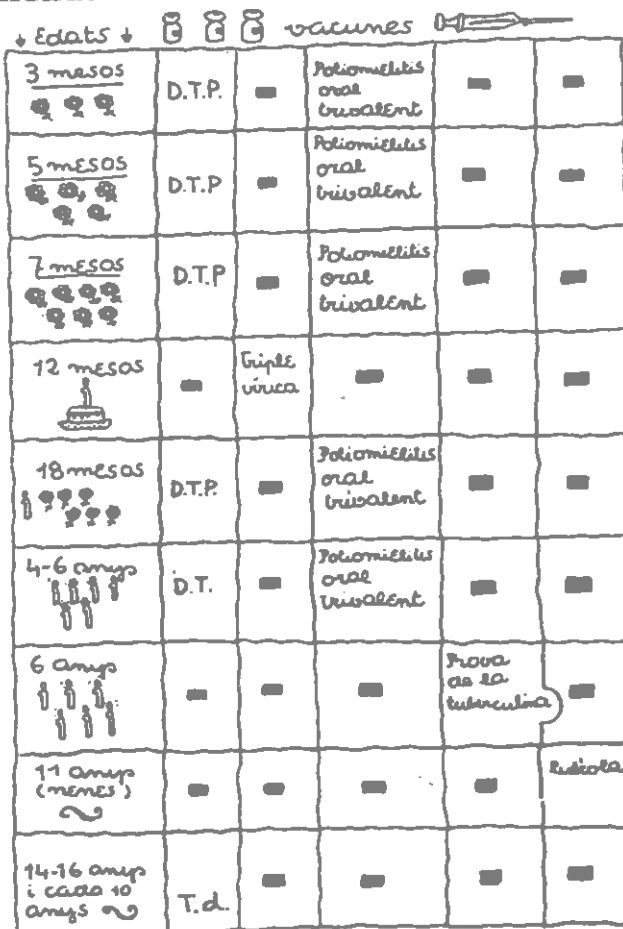 Edats vacunes
3 mesos D.T.P. Poliomielitis oral trivalent
5 mesos D.T.P Poliomielitis oral trivalent
7 mesos D.T.P Poliomielitis oral trivalent
12 mesos Triple vírica
18 mesos D.T.P. Poliomielitis oral trivalent
4-6 anys D.T. Poliomielitis oral trivalent
6 anys Prova de la tuberculina
11 anys (nenes) Rubèola
14-16 anys i cada 10 anys T.d.